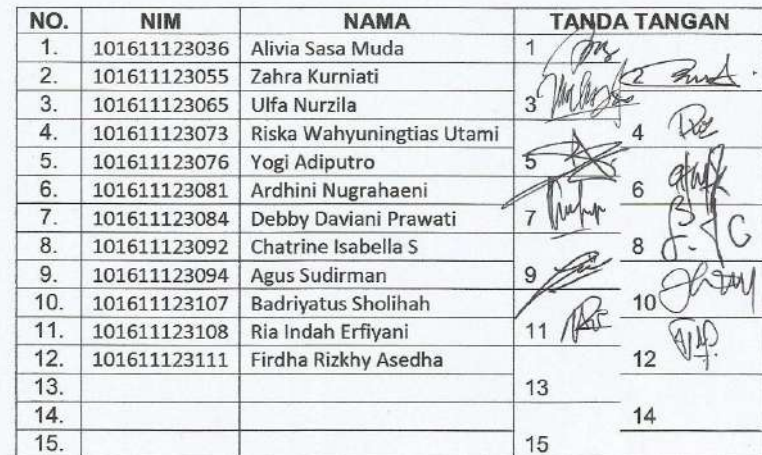 NO. NIM NAMA TANDA TANGAN
1. 101611123036 Alivia Sasa Muda 1
2. 101611123055 Zahra Kurniati 2
3. 101611123065 Ulfa Nurzila 3
4. 101611123073 Riska Wahyuningtias Utami 4
5. 101611123076 Yogi Adiputro 5
6. 101611123081 Ardhini Nugrahaeni 6
7. 101611123084 Debby Daviani Prawati 7
8. 101611123092 Chatrine Isabella S 8
9. 101611123094 Agus Sudirman 9
10. 101611123107 Badriyatus Sholihah 10
11. 101611123108 Ria Indah Erfiyani 11
12. 101611123111 Firdha Rizkhy Asedha 12
13. 13
14. 14
15. 15